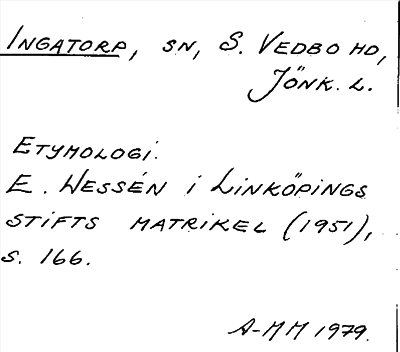 INGATORP, SN, S. VEDBO HD,
JÖNK. L.
ETYMOLOGI.
E. WESSÉN I LINKÖPINGS
STIFTS MATRIKEL (1951),
S. 166.
A-MM 1979.